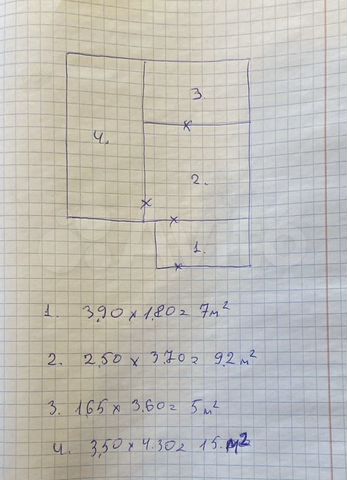 3.
4.
2.
1.
1. 3,90 x 1,80 = 7 м²
2. 2,50 x 3,70 = 9,2 м²
3. 1,65 x 3,60 = 5 м²
4. 3,50 x 4.30 = 15. м²